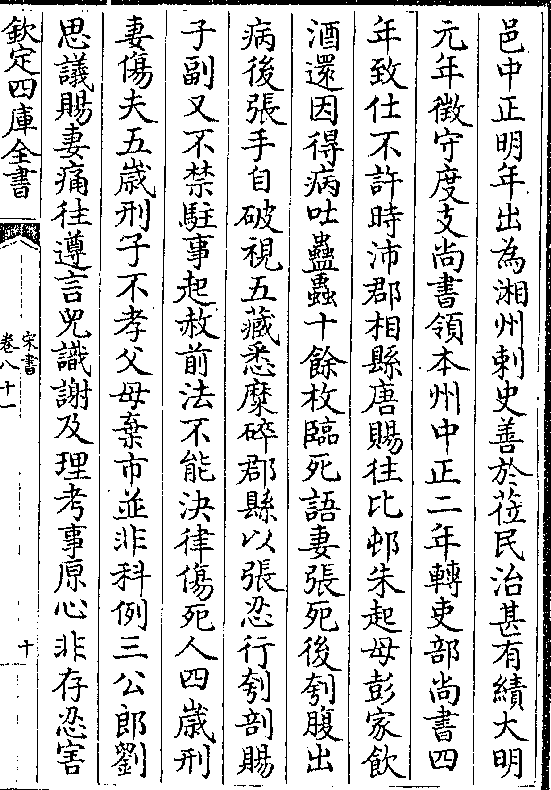 邑中正明年出為湘州刺史善於莅民治甚有績大明
元年徵守度支尚書領本州中正二年轉吏部尚書四
年致仕不許時沛郡相縣唐賜往比邨朱起母彭家飲
酒還因得病吐蠱蟲十餘枚臨死語妻張死後刳腹出
病後張手自破視五藏悉糜碎郡縣以張忍行刳剖賜
子副又不禁駐事起赦前法不能決律傷死人四歲刑
妻傷夫五歲刑子不孝父母棄市並非科例三公郎劉
思議賜妻痛往遵言兒識謝及理考事原心非存忍害
欽定四庫全書
宋書
卷八十一
十